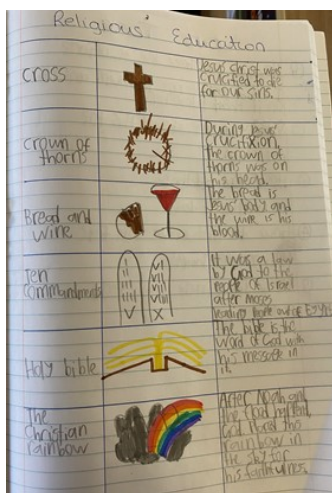 Religious Education
CROSS
Jesus christ was
crucified to die
for our sins.
Crown of
thorns
During Jesus'
crucifixion,
the crown of
thorns was on
his head.
Bread and
wine
The bread is
Jesus' body and
the wine is his
blood.
Ten
Commandments
I II III IV V
VI VII VIII IX X
It was a law
by God to the
people of Israel
after moses
leading people out of Egypt
Holy bible
The bible is the
word of God with
his message in
it.
The
Christian
rainbow
After Noah and
the flood happened,
God placed the
rainbow in
the sky for
his faithfulness.